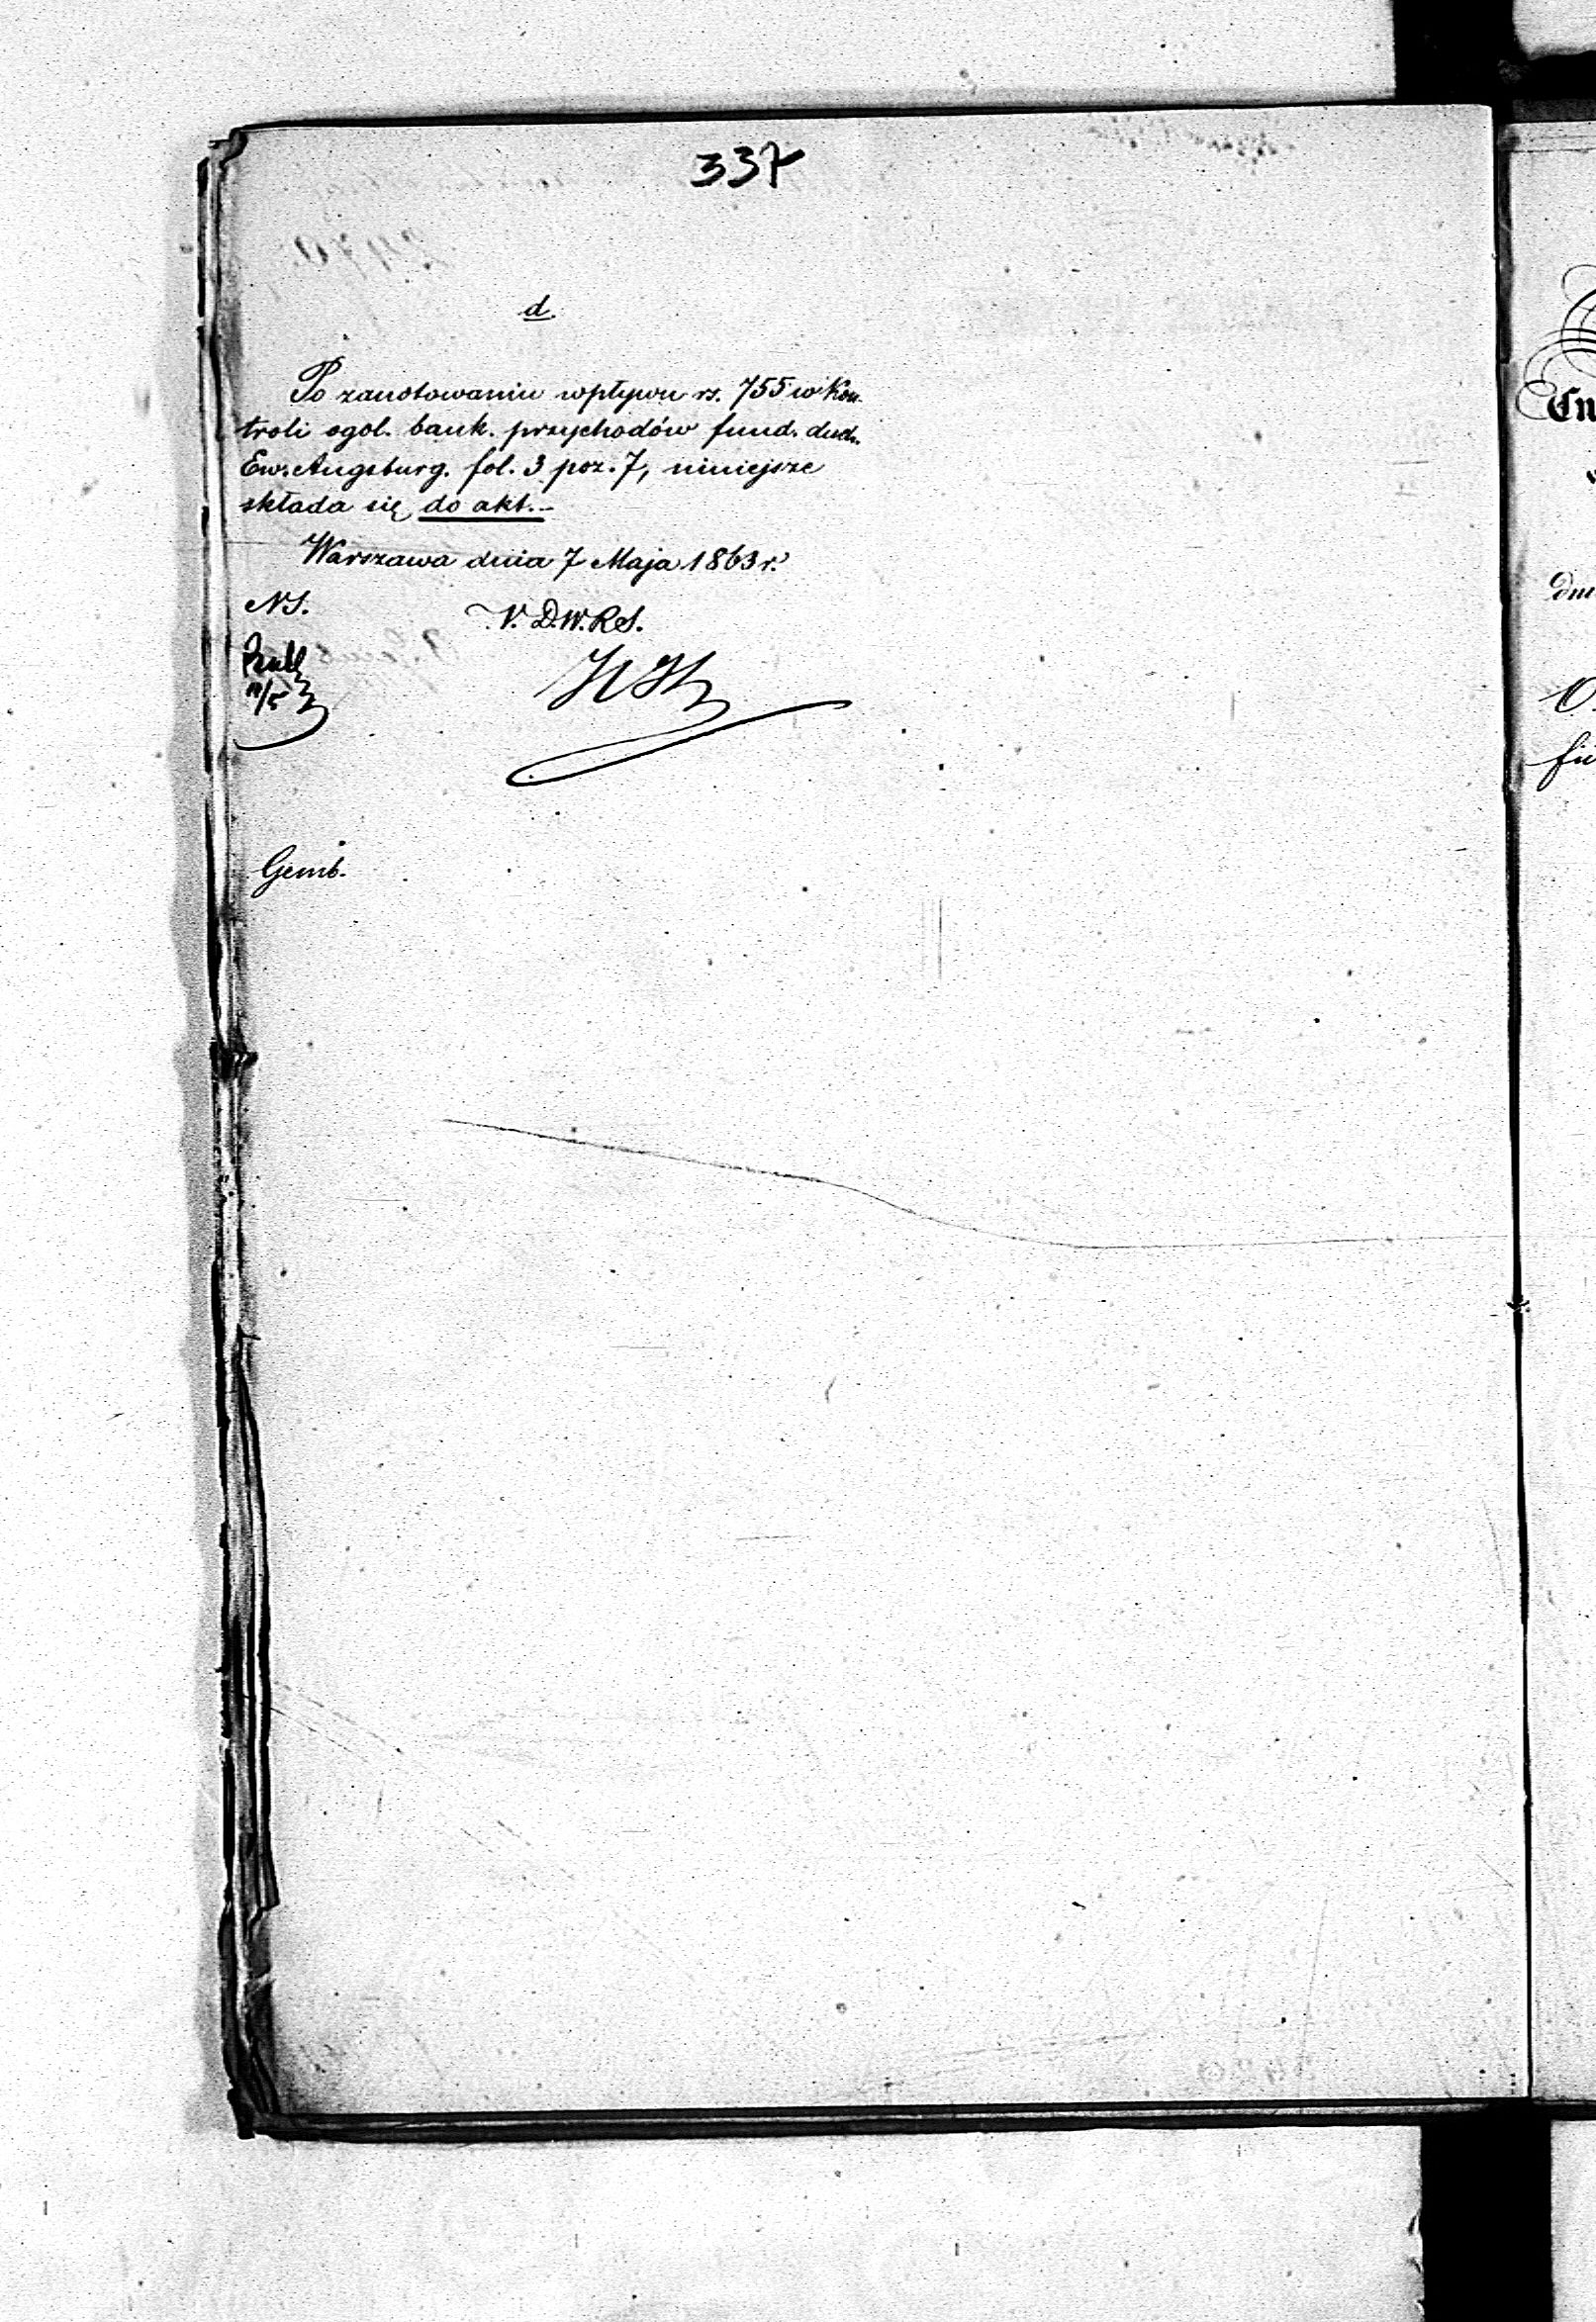 337
d.
Po zanotowaniu wpływu rs. 755 w Kon-
troli ogol. bank. przychodów fund. duch.
Ew. Augsburg. fol. 3 poz. 7, niniejsze
składa się do akt.-
Warszawa dnia 7 Maja 1863 r.
NS.
V. D.W.R.S.
Gemb.